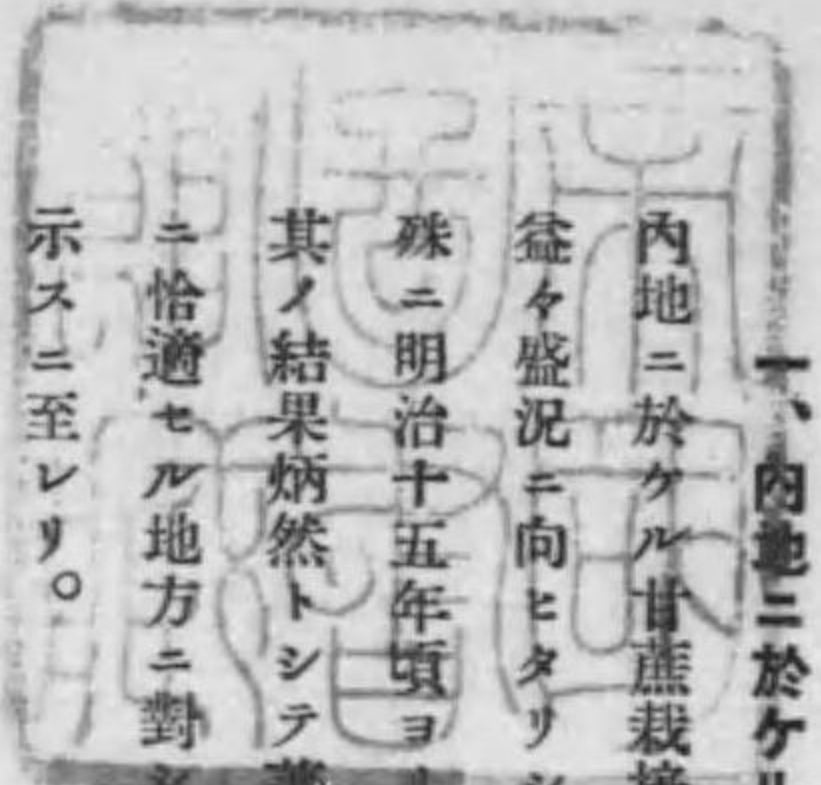 一、內地ニ於ケル
內地ニ於ケル甘蔗栽培
益々盛況ニ向ヒタリシ
殊ニ明治十五年頃ヨリ
其ノ結果炳然トシテ
ニ恰適セル地方ニ對シ
示スニ至レリ。